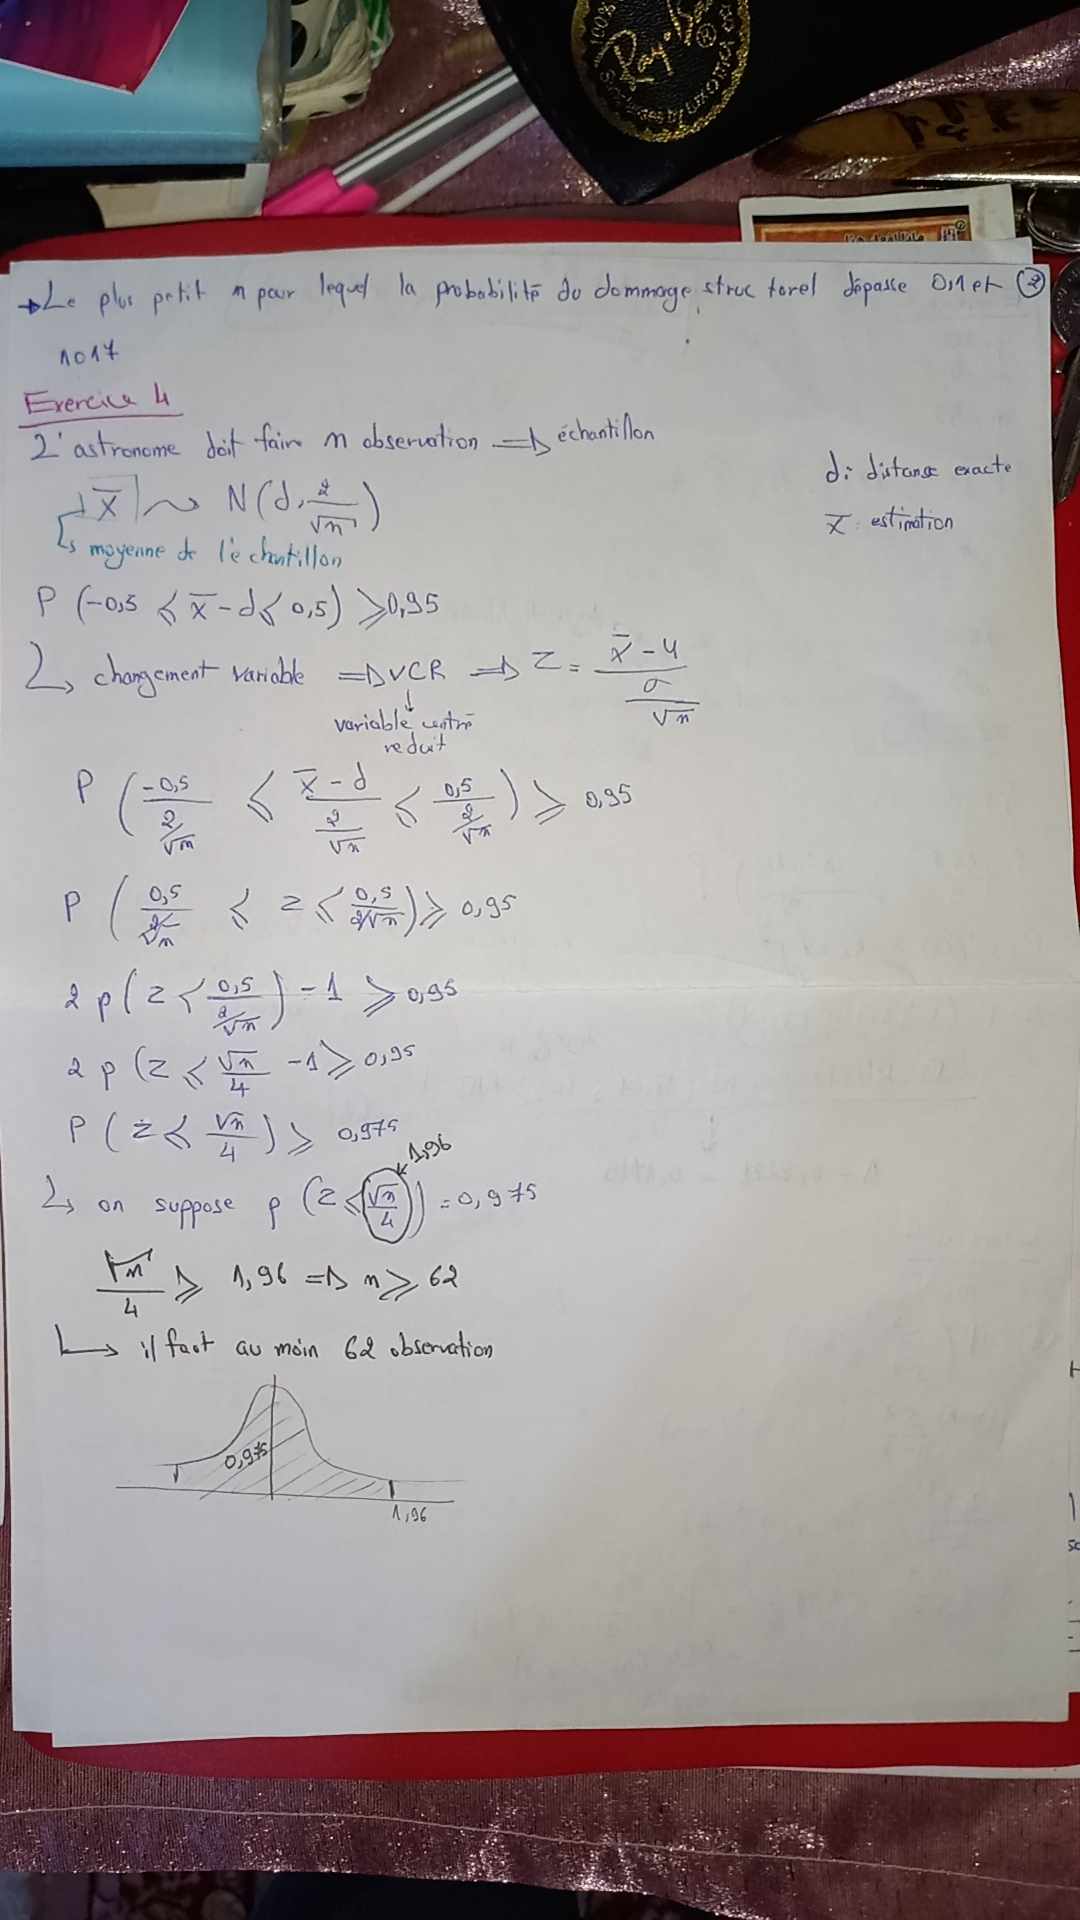 100%
Ray
®
→ Le plus petit n pour lequel la probabilité du dommage structurel dépasse 0,1 et ②
1017
Exercice 4
L'astronome doit faire n observation => échantillon
d: distance exacte
X̄ ~ N(d, 2/√n)
x̄: estimation
↳ moyenne de l'échantillon
P (-0,5 ≤ x̄ - d ≤ 0,5) ≥ 0,95
↳ changement variable => VCR => Z = (x̄ - u)/(σ/√n)
variable centré
reduit
P ((-0,5)/(2/√n) ≤ (x̄ - d)/(2/√n) ≤ (0,5)/(2/√n)) ≥ 0,95
P ((0,5)/(2/√n) ≤ z ≤ (0,5)/(2/√n)) ≥ 0,95
2 p(z ≤ (0,5)/(2/√n)) - 1 ≥ 0,95
2 p (z ≤ √n/4 - 1 ≥ 0,95
P (z ≤ √n/4) ≥ 0,975
1,96
↳ on suppose p (z ≤ √n/4) = 0,975
√n/4 ≥ 1,96 => n ≥ 62
↳ il faut au moin 62 observation
0,975
1,96